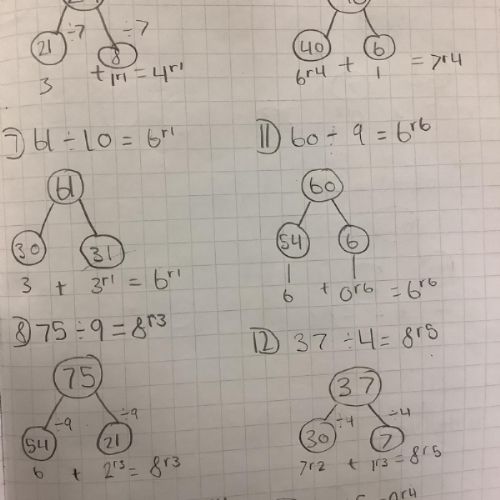 ÷7 ÷7
21 8
3 + 1r1 = 4r1
40 6
6r4 + 1 = 7r4
7) 61 ÷ 10 = 6r1
61
30 31
3 + 3r1 = 6r1
11) 60 ÷ 9 = 6r6
60
54 6
6 + 0r6 = 6r6
8) 75 ÷ 9 = 8r3
75
÷9 ÷9
54 21
6 + 2r3 = 8r3
12) 37 ÷ 4 = 8r5
37
÷4 ÷4
30 7
7r2 + 1r3 = 8r5